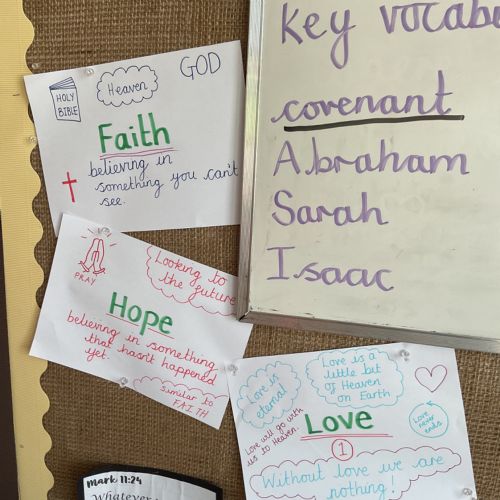 GOD
Heaven
HOLY
BIBLE
Faith
believing in
something you can't
see.
PRAY
Looking to
the future
Hope
believing in something
that hasn't happened
yet.
similar to
FAITH
Key vocabu
covenant
Abraham
Sarah
Isaac
Love is
eternal
Love is a
little bit
of Heaven
on Earth
Love will go with
us to Heaven.
Love
1
Love never
ends
Without love we are
nothing!
Mark 11:24
Whatever